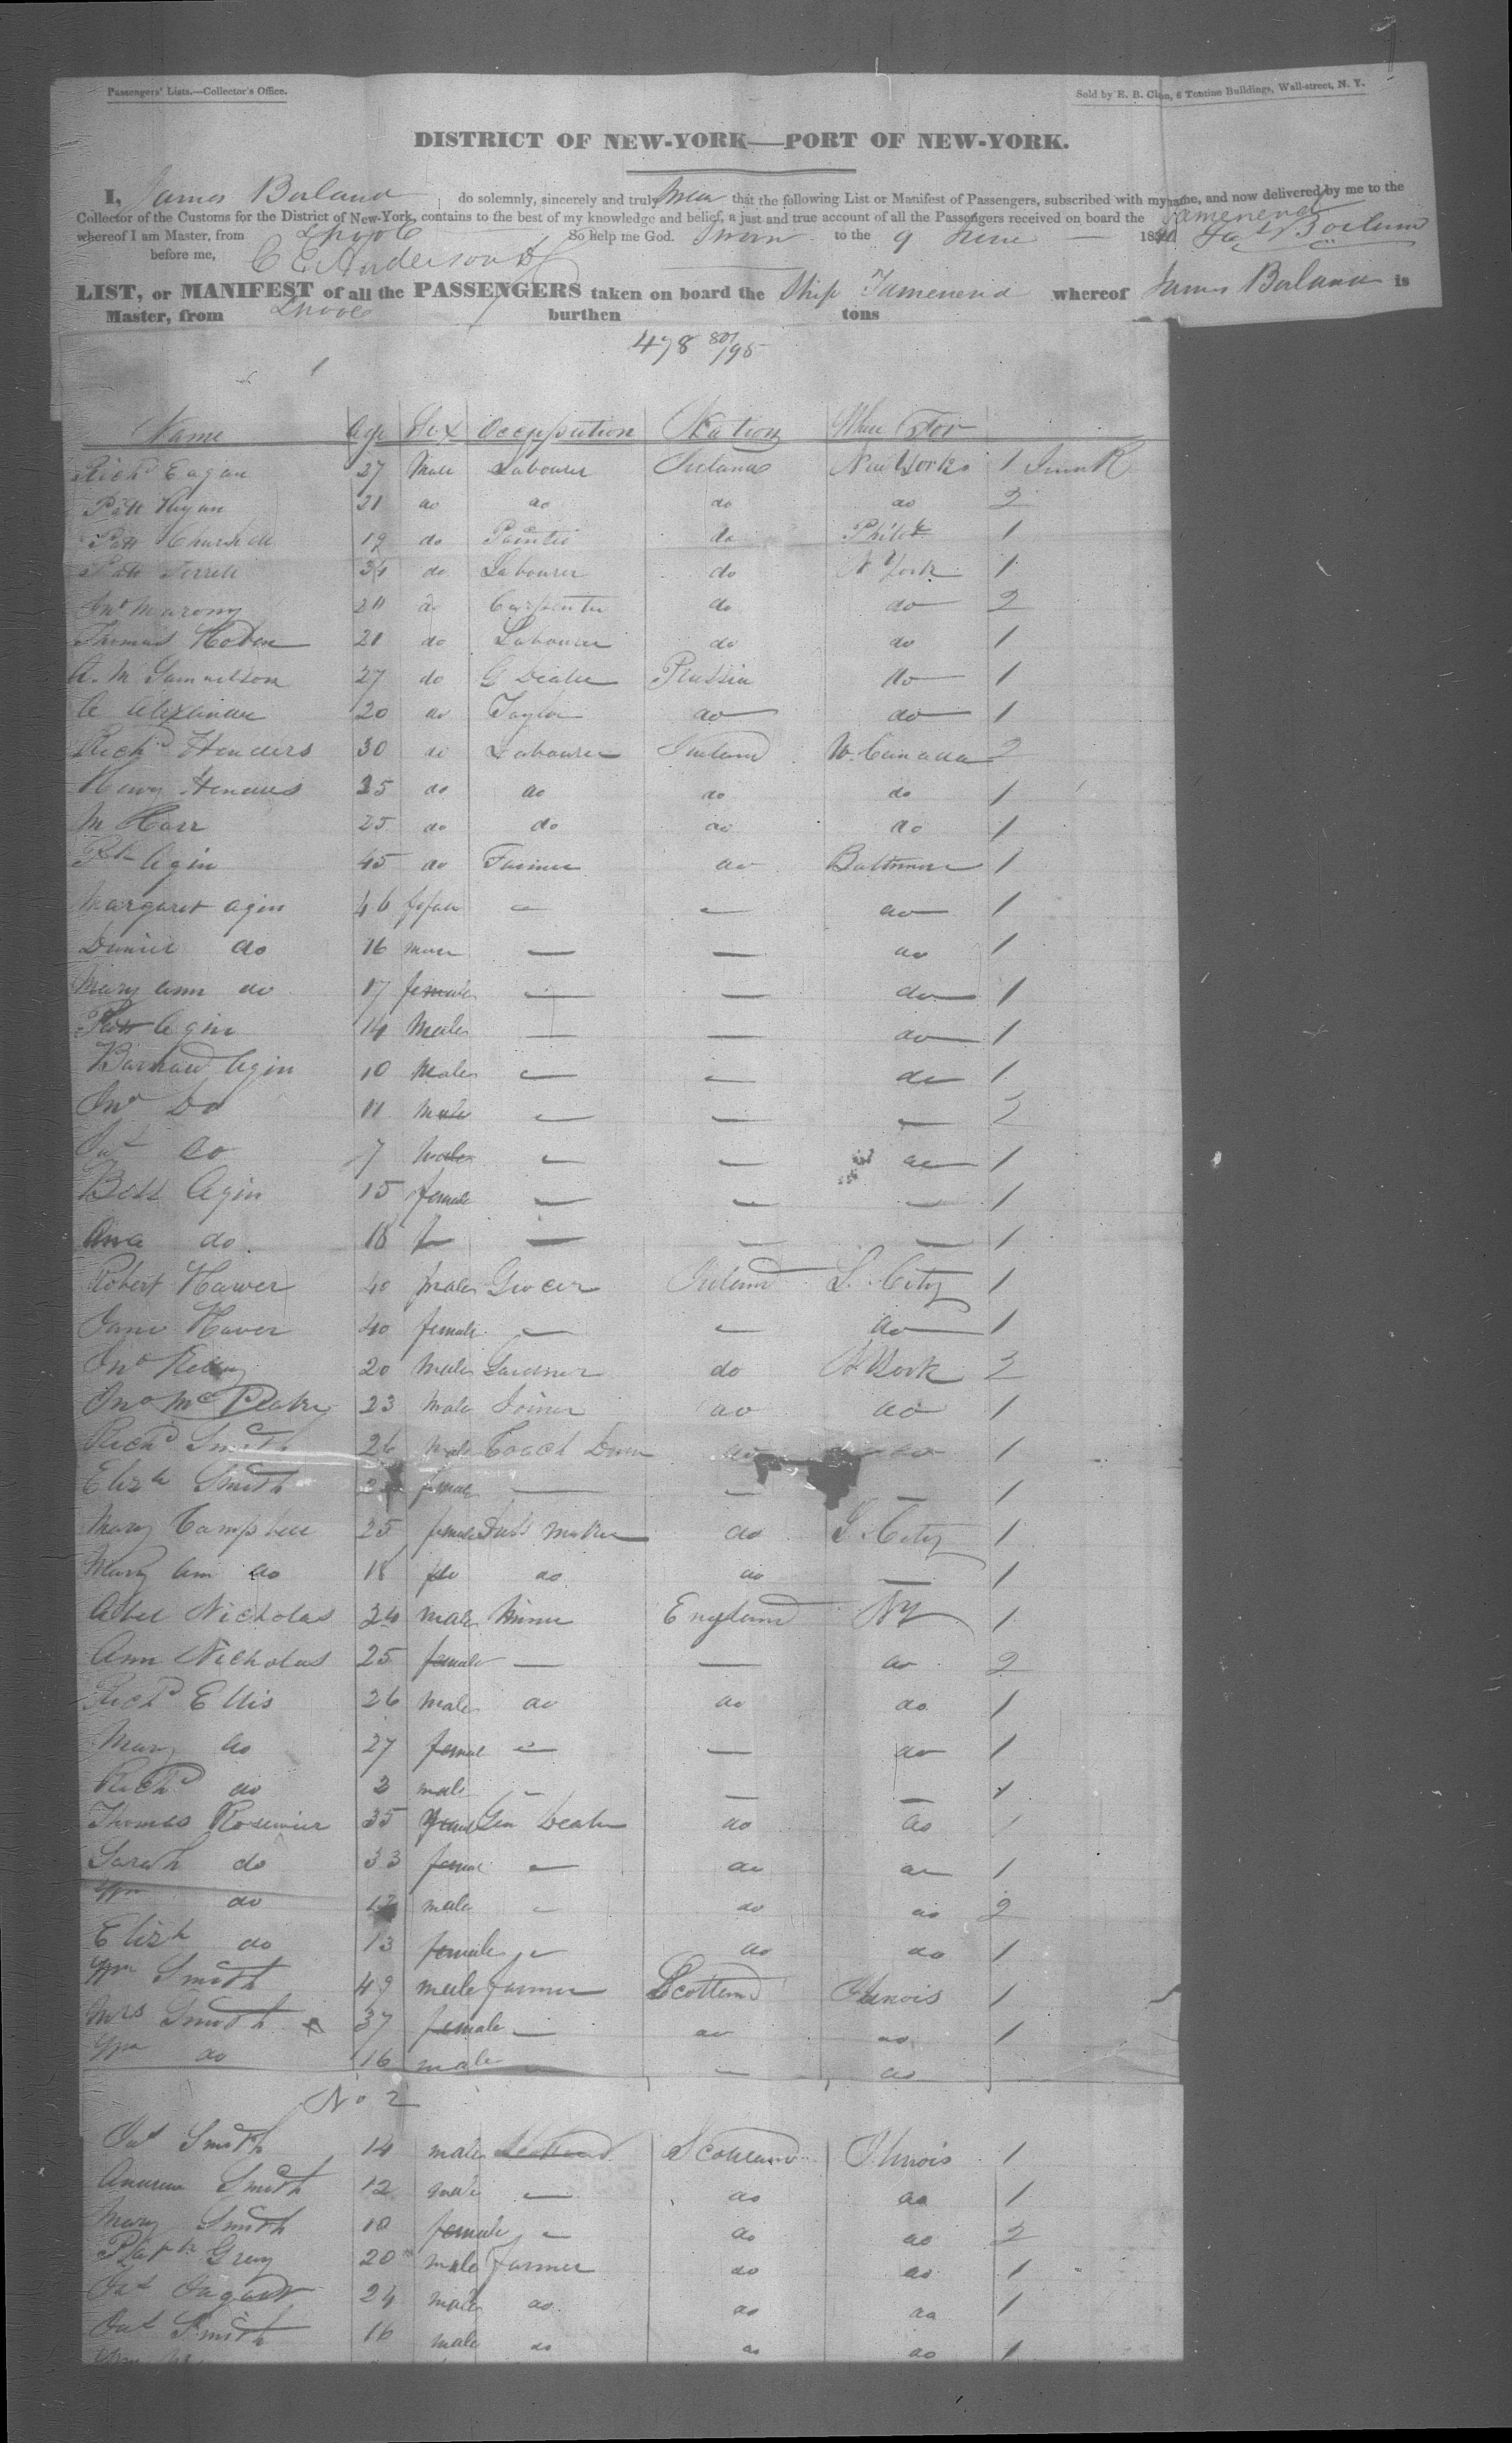 Passengers' Lists.—Collector's Office.
Sold by E. B. Clon, 6 Tontine Buildings, Wall-street, N. Y.
DISTRICT OF NEW-YORK—PORT OF NEW-YORK.
I, James Borland do solemnly, sincerely and truly swear that the following List or Manifest of Passengers, subscribed with my name, and now delivered by me to the
Collector of the Customs for the District of New-York, contains to the best of my knowledge and belief, a just and true account of all the Passengers received on board the Tamenend
whereof I am Master, from Lpool So help me God. Sworn to the 9 June 184 Jas Borland
before me, C E Anderson
LIST, or MANIFEST of all the PASSENGERS taken on board the Ship Tamenend whereof James Borland is
Master, from Lpool burthen tons
478 80/95
1
Name Age Sex Occupation Nation Where For
Richd Eagan 27 Male Labourer Ireland New York 1
Patt 21 do do do do 2
Patt 19 do Painter do Phila 1
Patt 34 do Labourer do N York 1
Jno Marony 20 do Carpenter do do 2
Thomas Hoban 21 do Labourer do do 1
A. M Samuelson 27 do G Dealer Prussia do 1
A Alexander 20 do Taylor do do 1
Richd Henders 30 do Labourer Ireland W. Canada 2
Henry Henders 35 do do do do 1
M Carr 25 do do do do 1
Agin 45 do Farmer do Baltimore 1
Margaret Agin 46 female — — do 1
Daniel do 16 male — — do 1
Mary Ann do 17 female — — do 1
Patt Agin 14 Male — — do 1
Barnard Agin 10 Male — — do 1
Jno Do 11 Male — — — 2
Jas do 7 Male — — do 1
Bess Agin 15 female — — — 1
Ana do 18 f — — — 1
Robert Haver 40 male Grocer Ireland L. City 1
Jane Haver 40 female — — do 1
Jno Kelly 20 Male Gardner do N York 2
Jno Mc 23 Male Joiner do do 1
Richd Smith 26 Male Coach do do 1
Elizh Smith female — — — 1
Mary Campbell 25 female Dress Maker do City 1
Mary Ann do 18 do do do — 1
Abel Nicholas 24 male Miner England NY 1
Ann Nicholas 25 female — — do 2
Richd Ellis 26 Male do do do 1
Mary do 27 female — — do 1
Richd do 2 male — — — 1
Thomas 35 Gen Dealer do do 1
Sarah do 33 female — do do 1
Wm do 12 male — do do 2
Elizh do 13 female — do do 1
Wm Smith 49 male farmer Scotland Illinois 1
Mrs Smith 37 female — do do 1
Wm do 16 male — — do
No 2
Jas Smith 14 male Scotland Scotland Illinois 1
Andrew Smith 12 male — do do 1
Mary Smith 10 female — do do 2
Grey 20 male farmer do do 1
Jas 24 male do do do 1
Jas Smith 16 male do do do 1